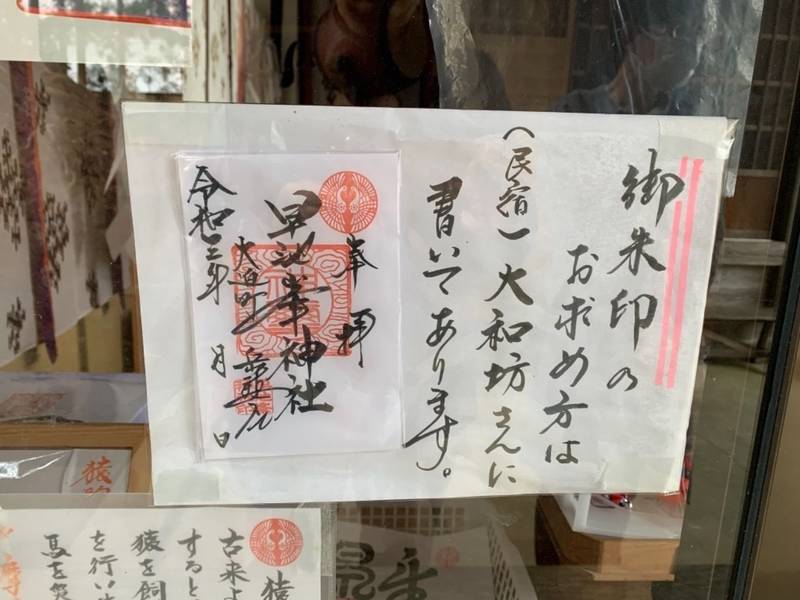 御朱印の
お求め方は
(民宿)大和坊さんに
書いてあります。
奉拝
早池峯神社
大迫町
令和三年 月 日
猿
猿
古来よ
すると
猿を飼
を行い
馬を